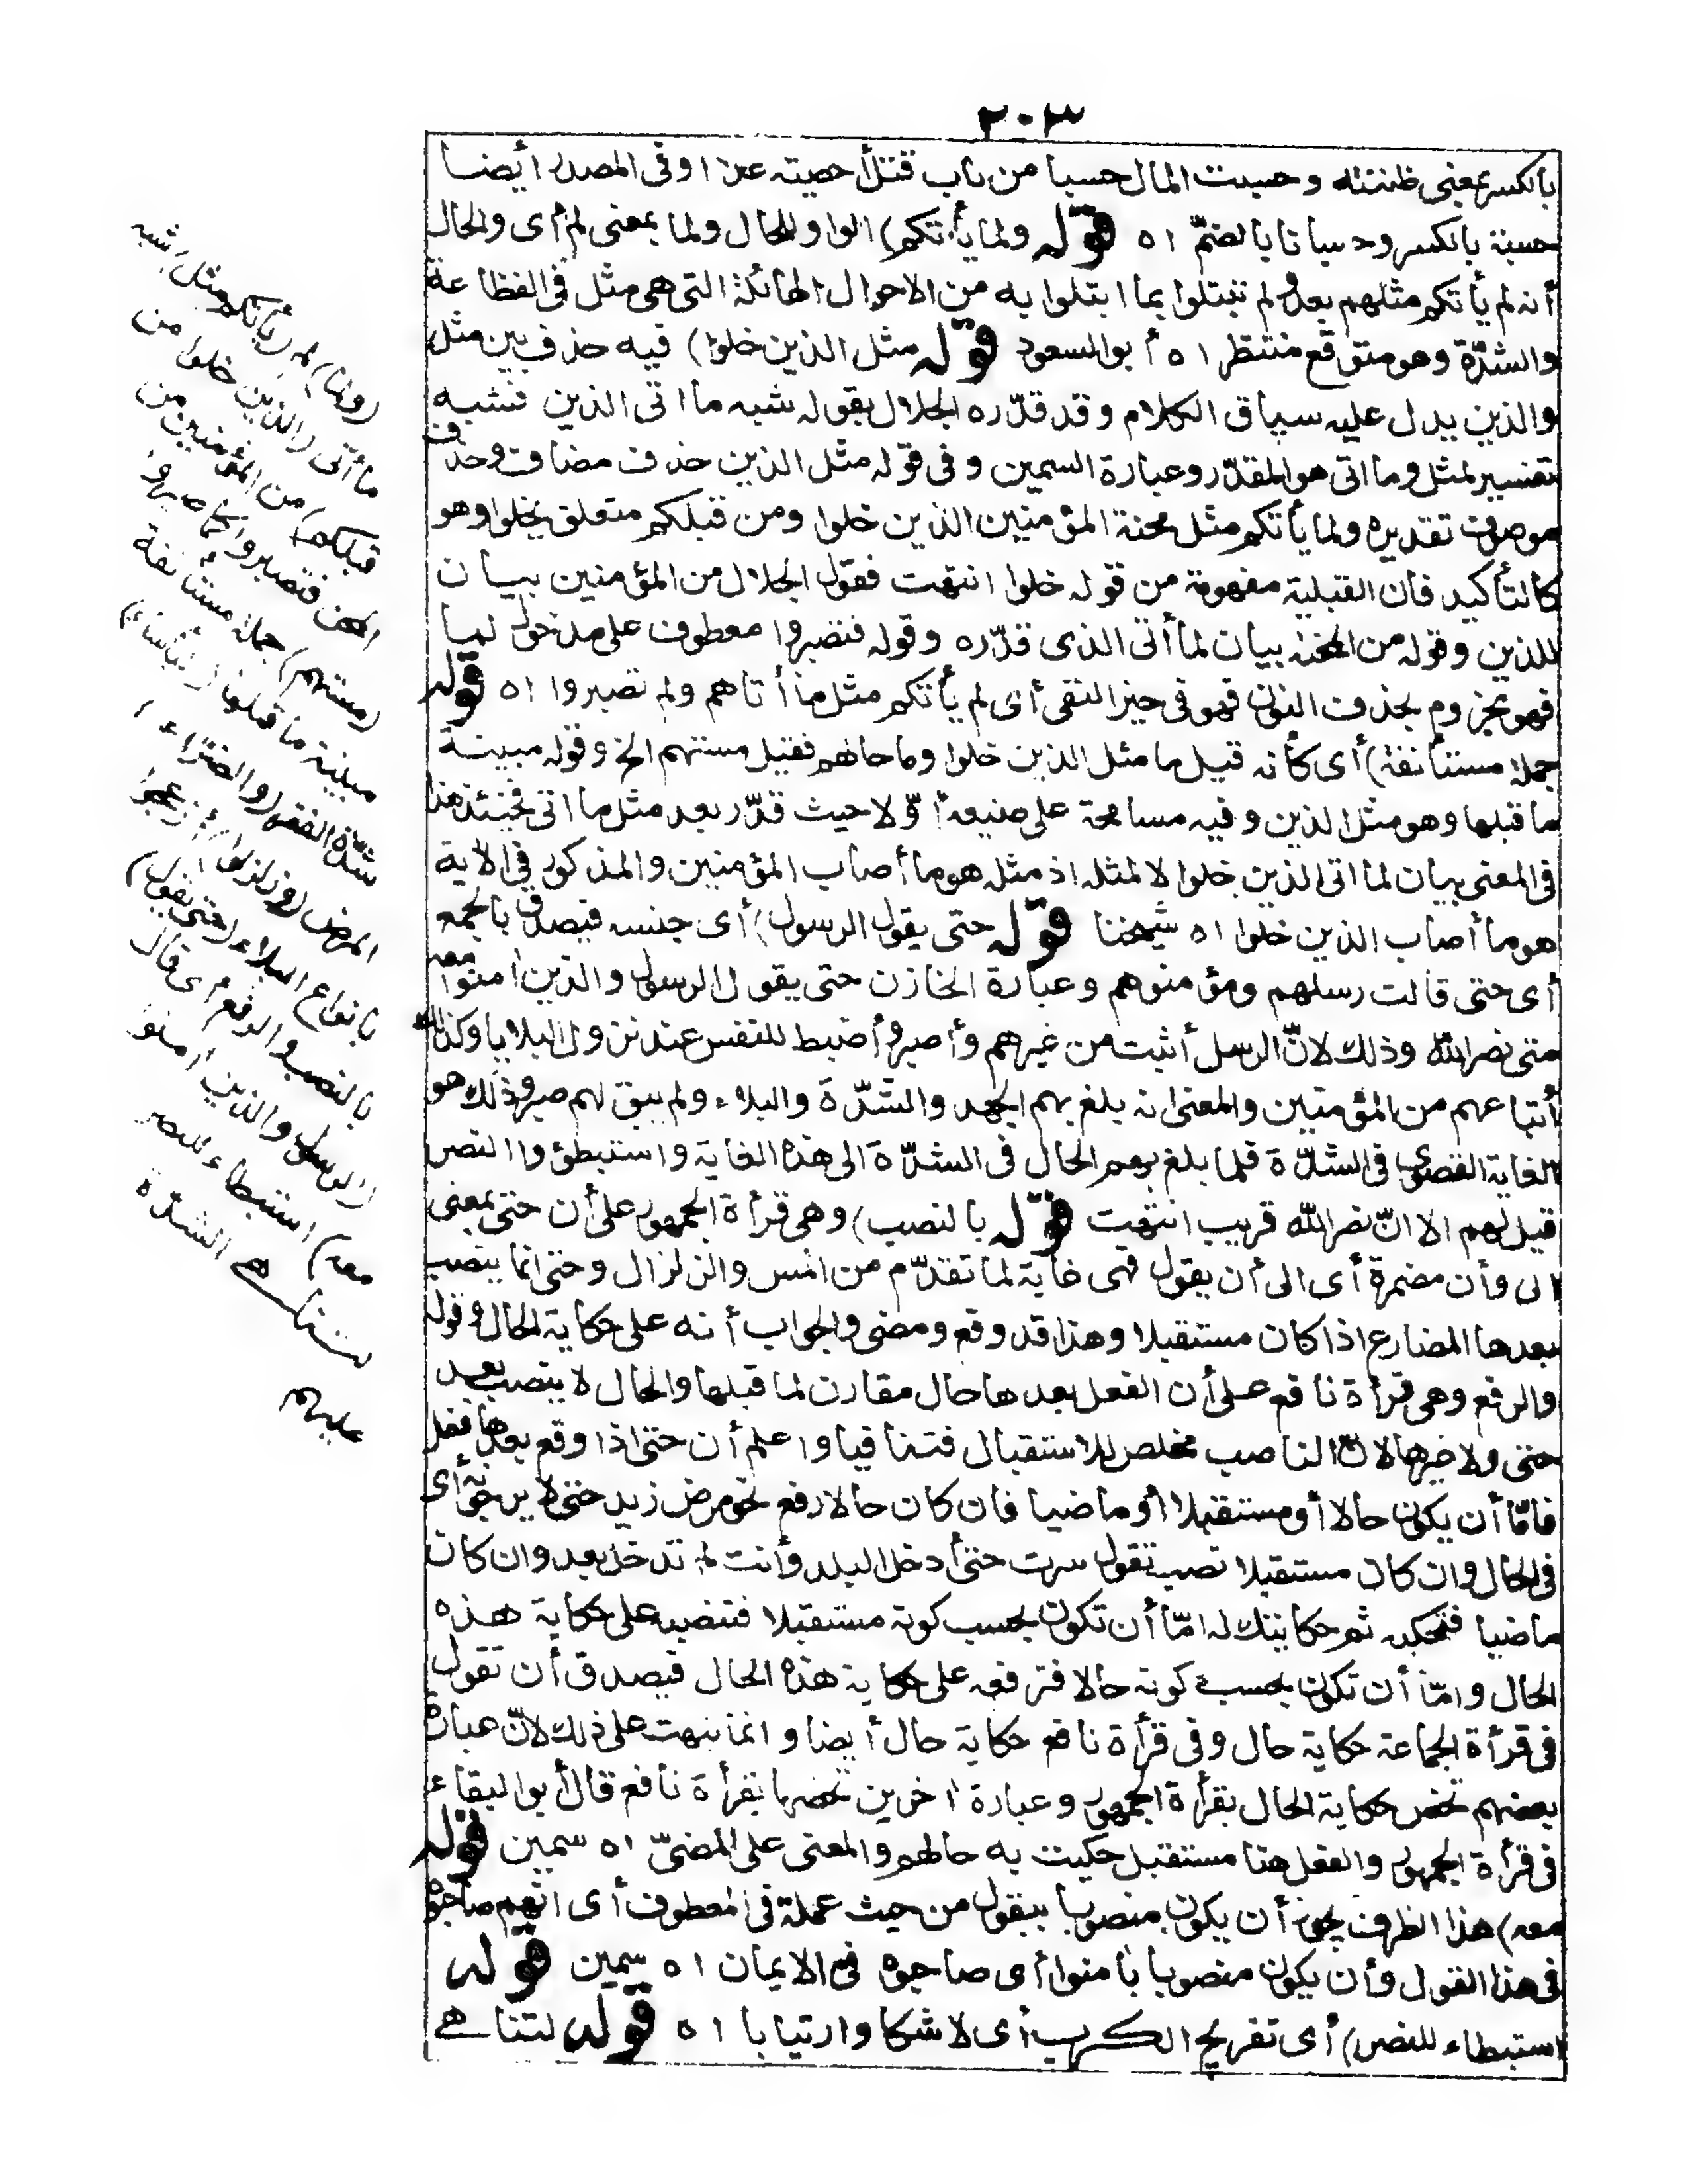 ٢٠٣
بالكسر بمعنى ظننته وحسبت المال حسبا من باب قتل أحصيته عددا وفى المصدر أيضا
حسبة بالكسر وحسبانا بالضمّ اه قوله ولما يأتكم) الواو للحال ولما بمعنى لم أى والحال
أنه لم يأتكم مثلهم بعد ولم تبتلوا بما ابتلوا به من الاحوال الهائلة التى هى مثل فى الفظاعة
والشدّة وهو متوقع منتظر اه أبو السعود قوله مثل الذين خلوا) فيه حذف بين مثل
والذين يدل عليه سياق الكلام وقد قدّره الجلال بقوله شبه ما اتى الذين فشبه
تفسير لمثل وما اتى هو المقدّر وعبارة السمين وفى قوله مثل الذين حذف مضاف وحذف
موصوف تقديره ولما يأتكم مثل محنة المؤمنين الذين خلوا ومن قبلكم متعلق بخلوا وهو
كالتأكيد فان القبلية مفهومة من قوله خلوا انتهت فقول الجلال من المؤمنين بيان
للذين وقوله من المحن بيان لما أتى الذى قدّره وقوله فتصبروا معطوف على مدخول لما
فهو مجزوم بحذف النون فهو فى حيز النفى أى لم يأتكم مثل ما أتاهم ولم تصبروا اه قوله
جملة مستأنفة) أى كأنه قيل ما مثل الذين خلوا وما حالهم فقيل مستهم الخ وقوله مبينة
ما قبلها وهو مثل الذين وفيه مسامحة على صنيعه أوّلا حيث قدّر بعد مثل ما اتى فحينئذ هذا
فى المعنى بيان لما اتى الذين خلوا لا لمثله اذ مثله هو ما أصاب المؤمنين والمذكور فى الاية
هو ما أصاب الذين خلوا اه شيخنا قوله حتى يقول الرسول) أى جنسه فيصدق بالجمع
أى حتى قالت رسلهم ومؤمنوهم وعبارة الخازن حتى يقول الرسول والذين امنوا معه
متى نصر الله وذلك لانّ الرسل أثبت من غيرهم وأصبر وأضبط للنفس عند نزول البلايا وكذلك
أتباعهم من المؤمنين والمعنى انه بلغ بهم الجهد والشدّة والبلاء ولم يبق لهم صبر وذلك هو
الغاية القصوى فى الشدّة فلما بلغ بهم الحال فى الشدّة الى هذه الغاية واستبطؤوا النصر
قيل لهم الا انّ نصر الله قريب انتهت قوله بالنصب) وهى قرأة الجمهور على أن حتى بمعنى
الى وأن مضمرة أى الى أن يقول فهى غاية لما تقدّم من المس والزلزال وحتى انما ينصب
بعدها المضارع اذا كان مستقبلا وهذا قد وقع ومضى والجواب أنه على حكاية الحال وقوله
والرفع وهى قرأة نافع على أن الفعل بعدها حال مقارن لما قبلها والحال لا ينصب بعد
حتى ولا غيرها لانّ الناصب مخلص للاستقبال فتنافيا واعلم أن حتى اذا وقع بعدها فعل
فامّا أن يكون حالا أو مستقبلا أو ماضيا فان كان حالا رفع نحو مرض زيد حتى لا يرجونه أى
فى الحال وان كان مستقبلا نصب تقول سرت حتى أدخل البلد وأنت لم تدخل بعد وان كان
ماضيا فتحكيه ثم حكايتك له امّا أن تكون بحسب كونه مستقبلا فتنصبه على حكاية هذه
الحال وامّا أن تكون بحسب كونه حالا فترفعه على حكاية هذه الحال فيصدق أن تقول
فى قرأة الجماعة حكاية حال وفى قرأة نافع حكاية حال أيضا وانما نبهت على ذلك لانّ عبارة
بعضهم تخص حكاية الحال بقرأة الجمهور وعبارة اخرين تخصها بقرأة نافع قال أبو البقاء
فى قرأة الجمهور والفعل هنا مستقبل حكيت به حالهم والمعنى على المضىّ اه سمين قوله
معه) هذا الظرف يجوز أن يكون منصوبا بيقول من حيث عمله فى المعطوف أى انهم صاحبوه
فى هذا القول وأن يكون منصوبا بامنوا أى صاحبوه فى الايمان اه سمين قوله
استبطاء للنصر) أى تفريج الكرب أى لا شكا وارتيابا اه قوله لتناهى
(ولما) لم (يأتكم مثل) شبه
ما أتى (الذين خلوا من
قبلكم) من المؤمنين من
المحن فتصبروا كما صبروا
(مستهم) جملة مستأنفة
مبينة ما قبلها (البأساء)
شدّة الفقر (والضرّاء)
المرض (وزلزلوا) أزعجوا
بانواع البلاء (حتى يقول)
بالنصب والرفع أى قال
(الرسول والذين امنوا
معه) استبطاء للنصر
لتناهى الشدّة
عليهم